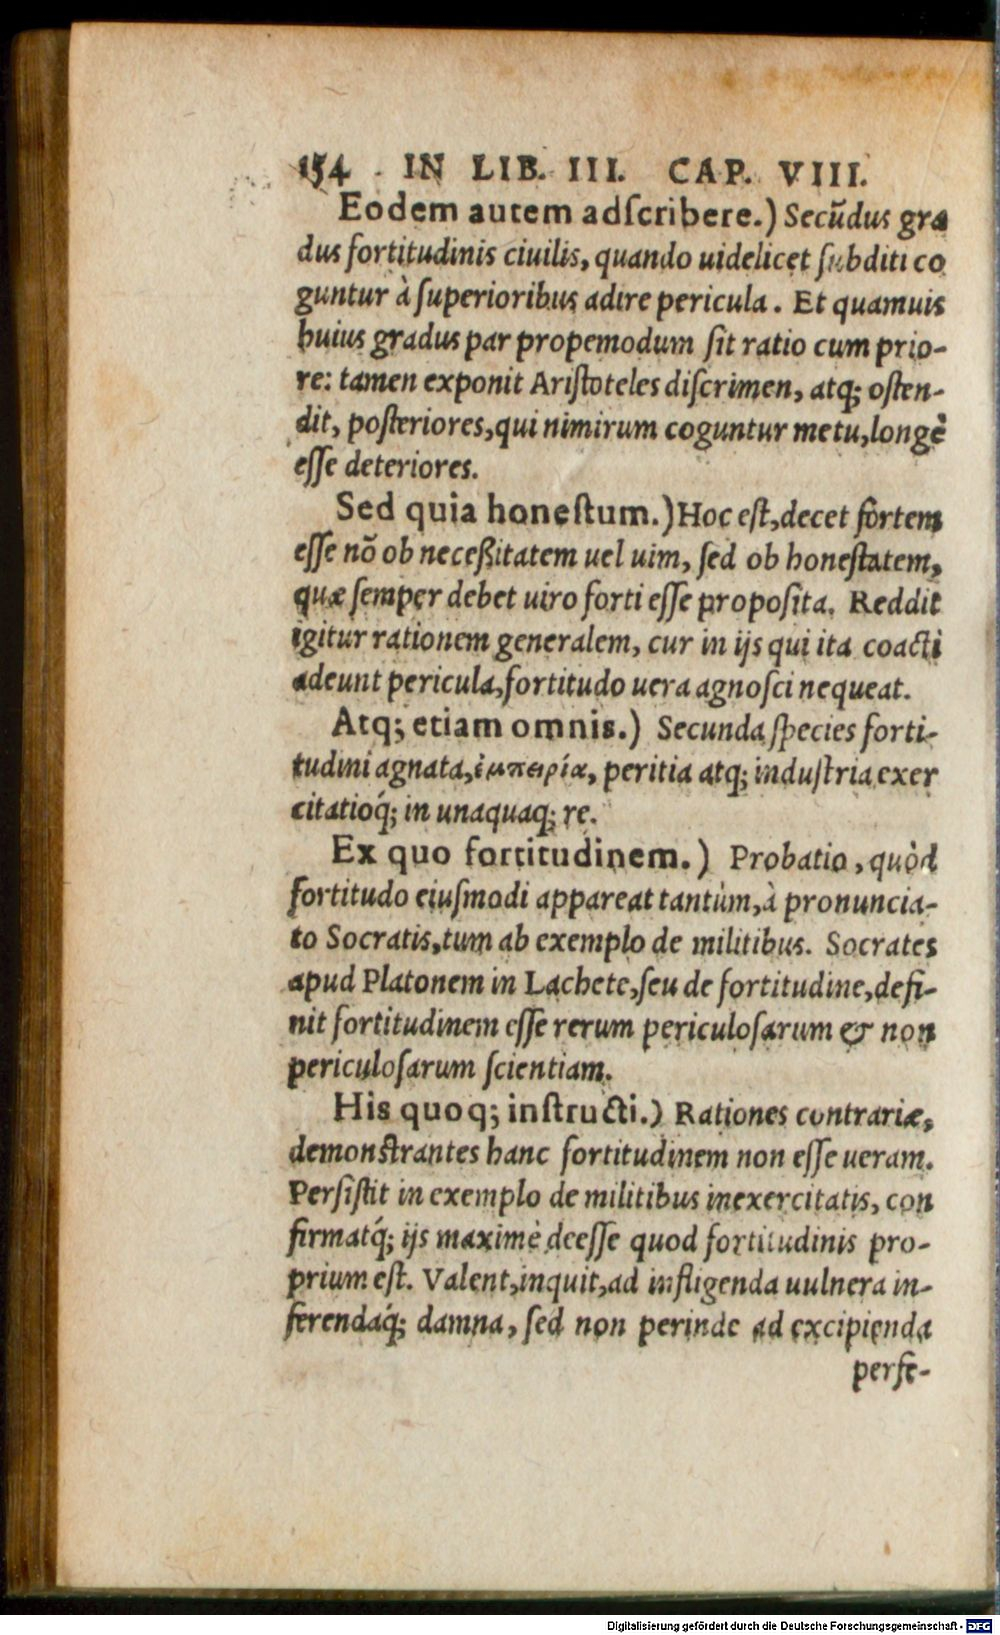 154 IN LIB. III. CAP. VIII.
Eodem autem adſcribere.) Secũdus gra
dus fortitudinis ciuilis, quando uidelicet ſubditi co
guntur à ſuperioribus adire pericula. Et quamuis
huius gradus par propemodum ſit ratio cum prio-
re: tamen exponit Ariſtoteles diſcrimen, atq; oſten-
dit, poſteriores, qui nimirum coguntur metu, longè
eſſe deteriores.
Sed quia honeſtum.) Hoc eſt, decet fortem
eſſe nõ ob neceßitatem uel uim, ſed ob honeſtatem,
quæ ſemper debet uiro forti eſſe propoſita. Reddit
igitur rationem generalem, cur in ijs qui ita coacti
adeunt pericula, fortitudo uera agnoſci nequeat.
Atq; etiam omnis.) Secunda ſpecies forti-
tudini agnata, ἐμπειρία, peritia atq; induſtria exer
citatioq́; in unaquaq; re.
Ex quo fortitudinem.) Probatio, quòd
fortitudo eiuſmodi appareat tantùm, à pronuncia-
to Socratis, tum ab exemplo de militibus. Socrates
apud Platonem in Lachete, ſeu de fortitudine, defi-
nit fortitudinem eſſe rerum periculoſarum & non
periculoſarum ſcientiam.
His quoq; inſtructi.) Rationes contrariæ,
demonſtrantes hanc fortitudinem non eſſe ueram.
Perſiſtit in exemplo de militibus inexercitatis, con
firmatq́; ijs maximè deeſſe quod fortitudinis pro-
prium eſt. Valent, inquit, ad infligenda uulnera in-
ferendaq́; damna, ſed non perinde ad excipienda
perfe-
Digitalisierung gefördert durch die Deutsche Forschungsgemeinschaft - DFG